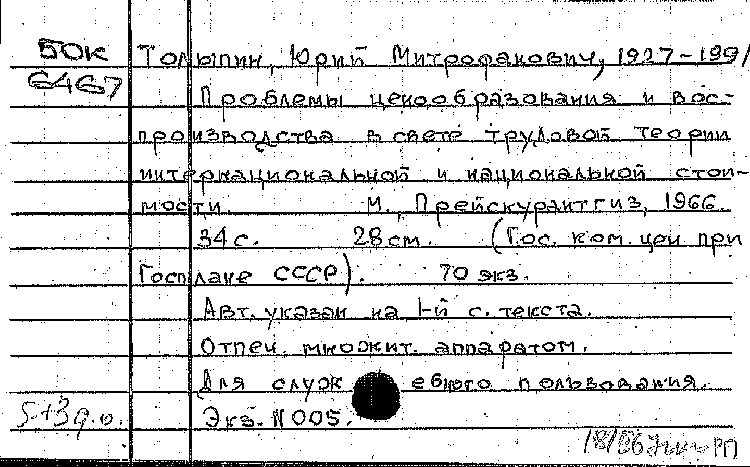 БОК Толыпин, Юрий Митрофанович, 1927-199/
6467 Проблемы ценообразования и вос-
производства в свете трудовой теории
интернациональной и национальной стои-
мости. М., Прейскурантгиз, 1966.
34 с. 28 см. (Гос. ком. цен при
Госплане СССР). 70 экз.
Авт. указан на 1-й с. текста.
Отпеч. множит. аппаратом.
Для служебного пользования.
Экз. N 005.
18/86 РП